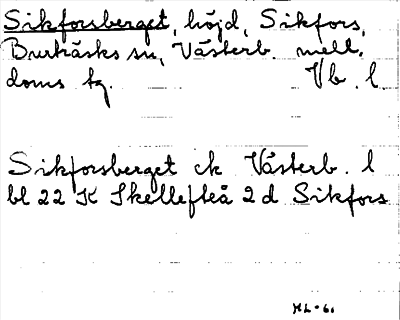 Sikforsberget, höjd, Sikfors,
Burträsks sn, Västerb. mell.
doms tg. Vb. l.
Sikforsberget ek Västerb. l
bl 22 K Skellefteå 2 d Sikfors
HL-61